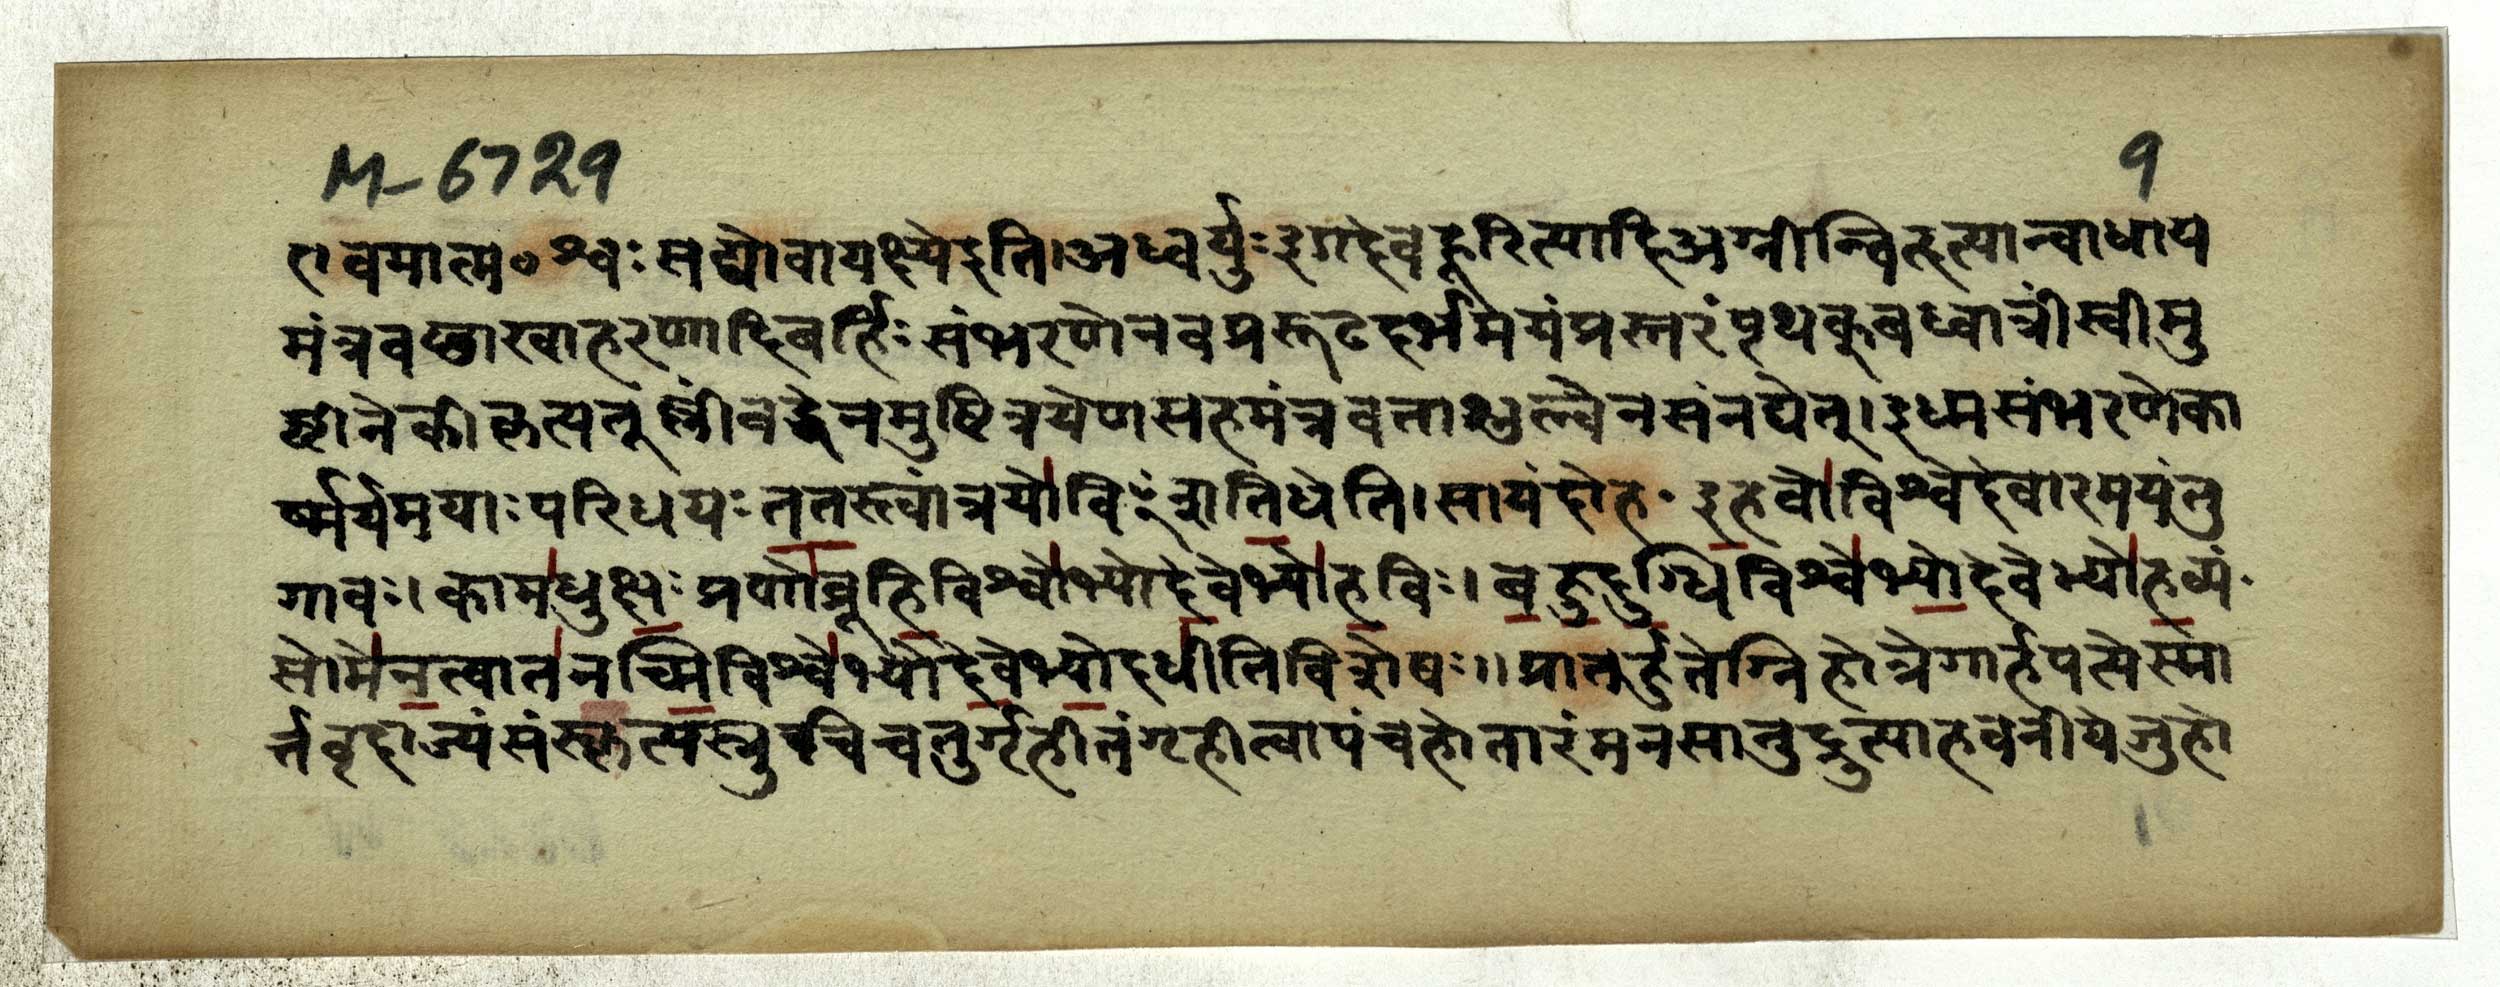 M-6729
१
ह्यवमात्म० श्वः सद्योवायक्ष्येइति।अध्वर्युः इगदेवहूरित्यादिअग्नीन्विहृत्यान्वाधाय
मंत्रवच्छाखाहरणादिबर्हिः संभरणेनवप्ररूढदर्भमयंप्रस्तरंपृथक्बध्वात्रींस्त्रीमु
ष्टीनेकीकृत्यतूष्णींबद्धेनमुष्टित्रयेणसहमंत्रवताशुल्बेनसंनह्येत्।इध्मसंभरणेका
र्ष्मर्यमयाःपरिधयःततस्त्वांत्रयोविꣳशतिधेति।सायंदोह॰इहवोविश्वेदेवारमयंतु
गावः।कामधुक्षःप्रणोब्रूहिविश्वेभ्योदेवेभ्योहविः।बहुदुग्धिविश्वेभ्योदेवेभ्योहव्यं॰
सोमेनत्वातनच्मिविश्वेभ्योदेवेभ्योदधीतिविशेषः॥प्रातर्हुतेग्निहोत्रेगार्हपत्येस्मा
र्तवृदाज्यंसंस्कृत्यस्रुचिचतुर्गृहीतंगृहीत्वापंचहोतारंमनसानुद्रुत्याहवनीयेजुहो